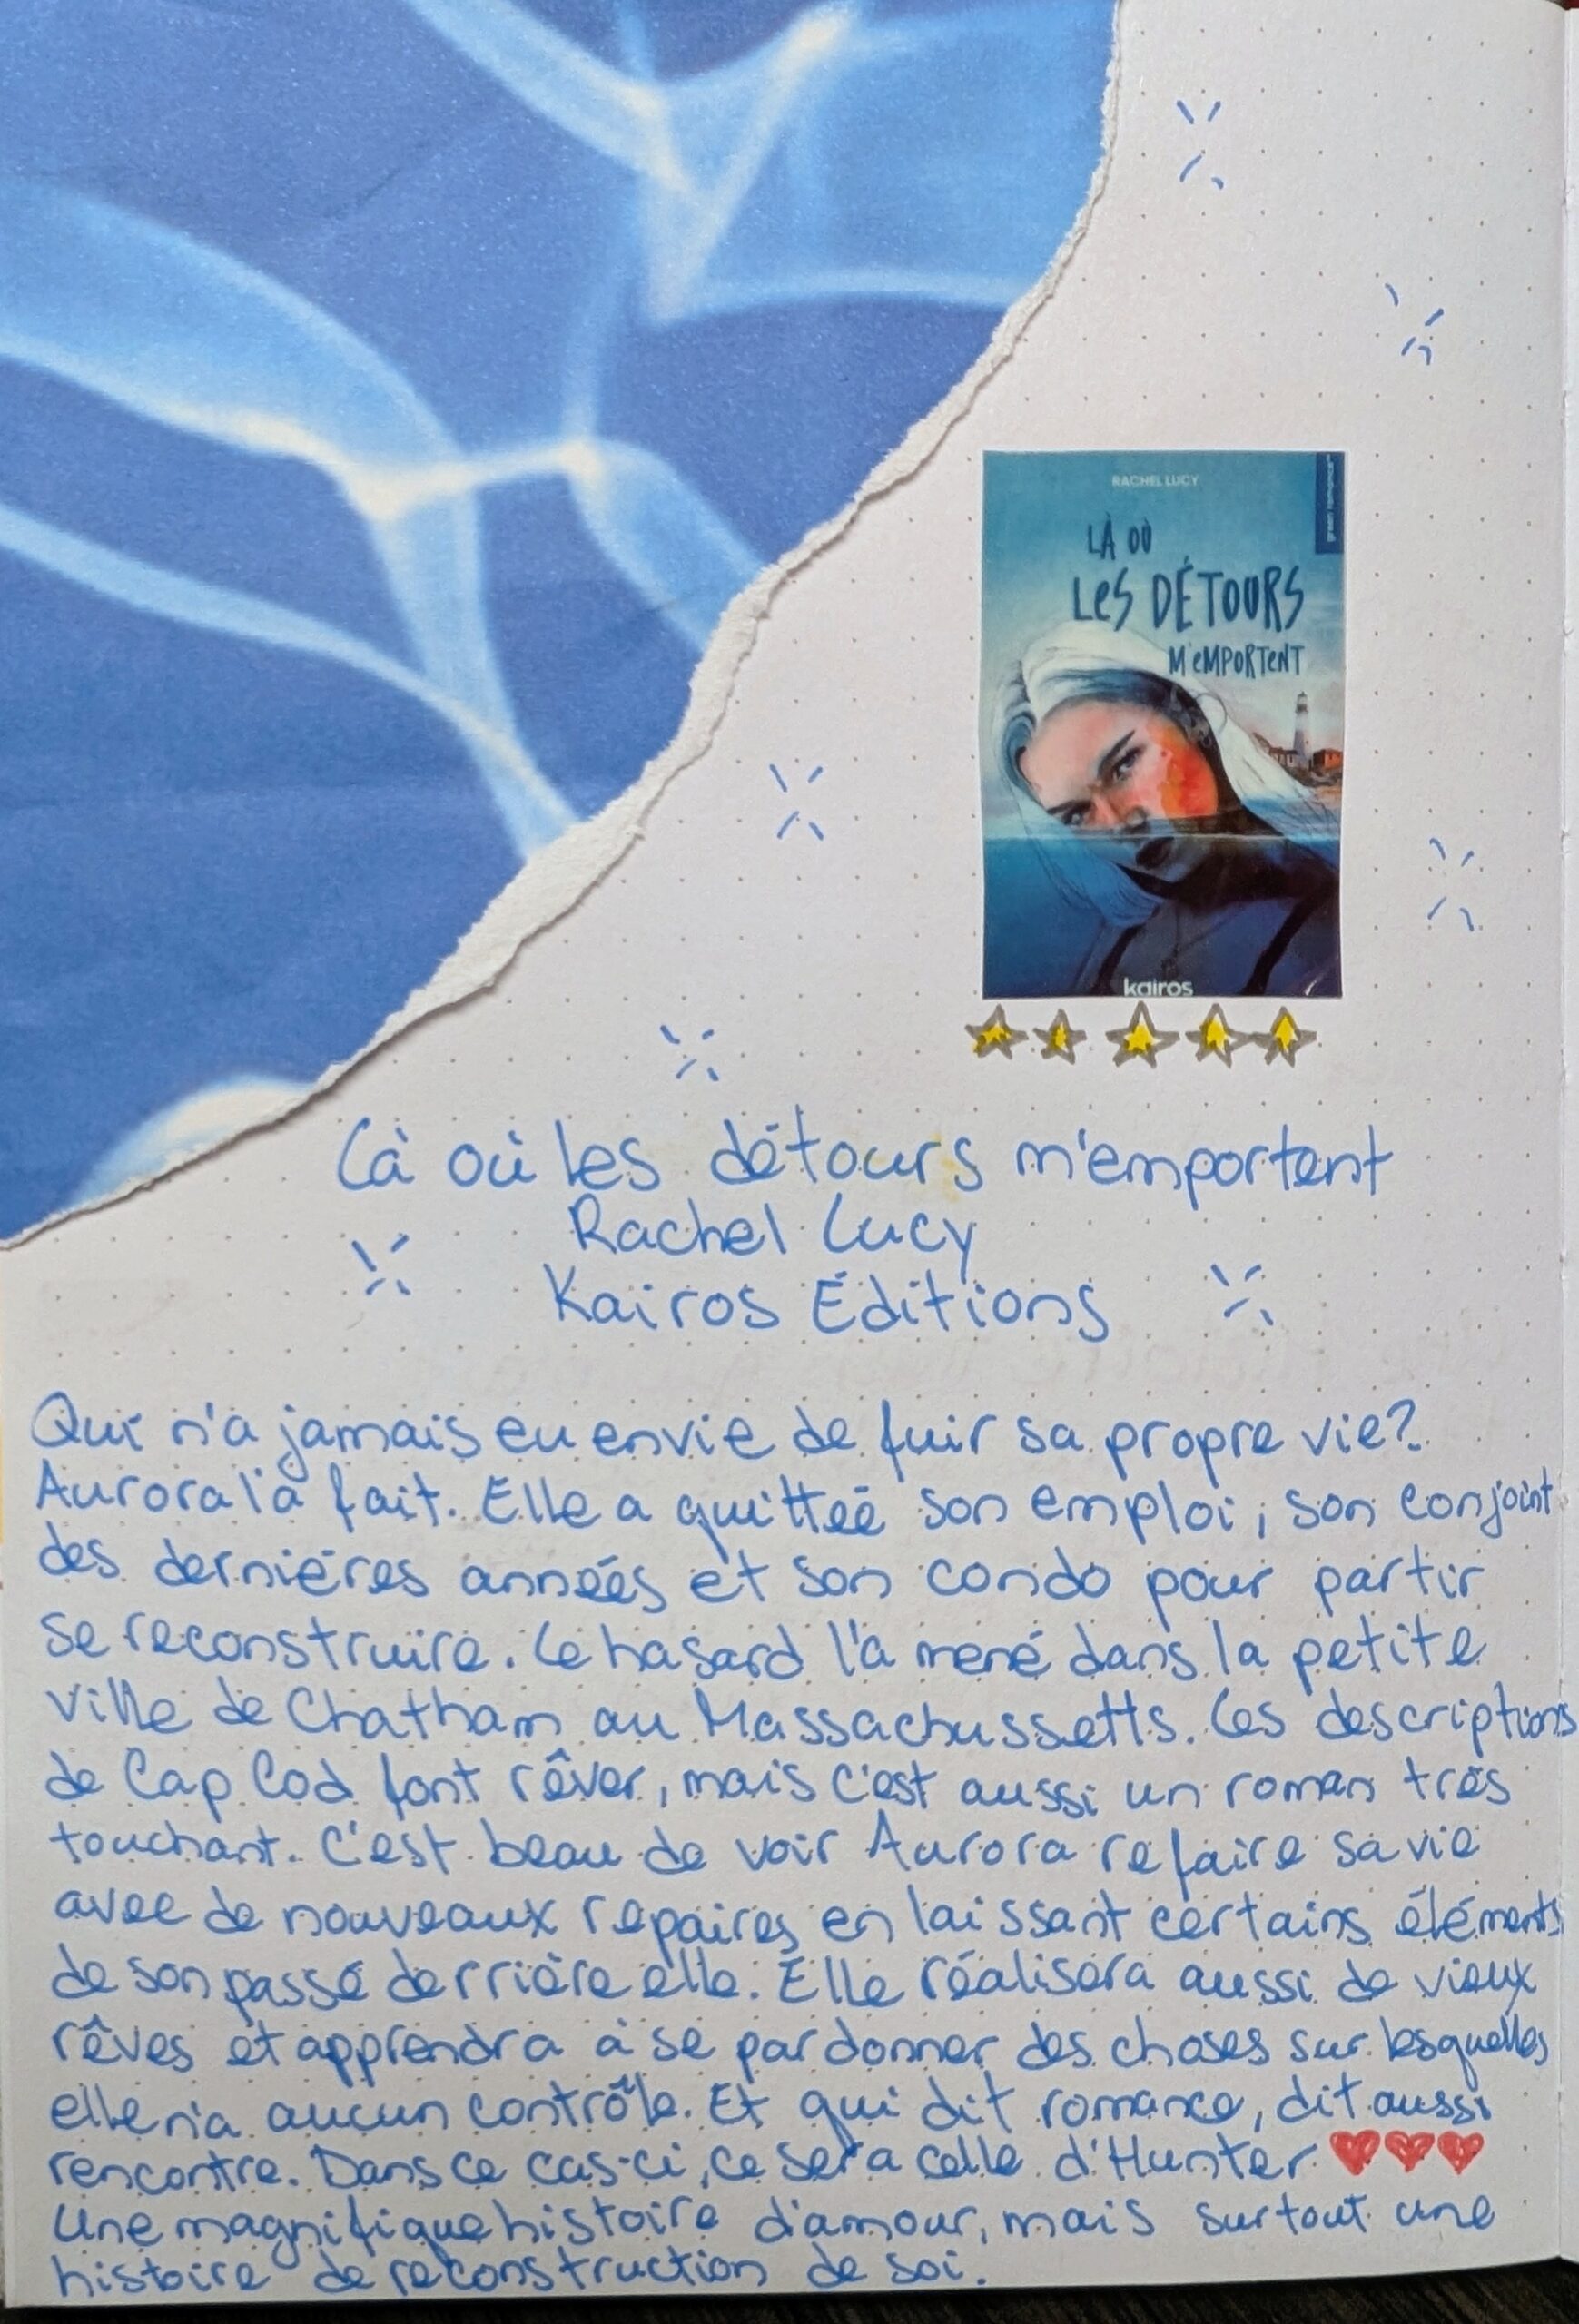 RACHEL LUCY
LÀ OÙ
LES DÉTOURS
M'EMPORTENT
kairos
Là où les détours m'emportent
Rachel Lucy
Kairos Éditions
Qui n'a jamais eu envie de fuir sa propre vie?
Aurora l'a fait. Elle a quittée son emploi, son conjoint
des dernières années et son condo pour partir
se reconstruire. Le hasard l'a mené dans la petite
ville de Chatham au Massachussetts. Les descriptions
de Cap Cod font rêver, mais c'est aussi un roman très
touchant. C'est beau de voir Aurora refaire sa vie
avec de nouveaux repaires en laissant certains éléments
de son passé derrière elle. Elle réalisera aussi de vieux
rêves et apprendra à se pardonner des choses sur lesquelles
elle n'a aucun contrôle. Et qui dit romance, dit aussi
rencontre. Dans ce cas-ci, ce sera celle d'Hunter
Une magnifique histoire d'amour, mais surtout une
histoire de reconstruction de soi.